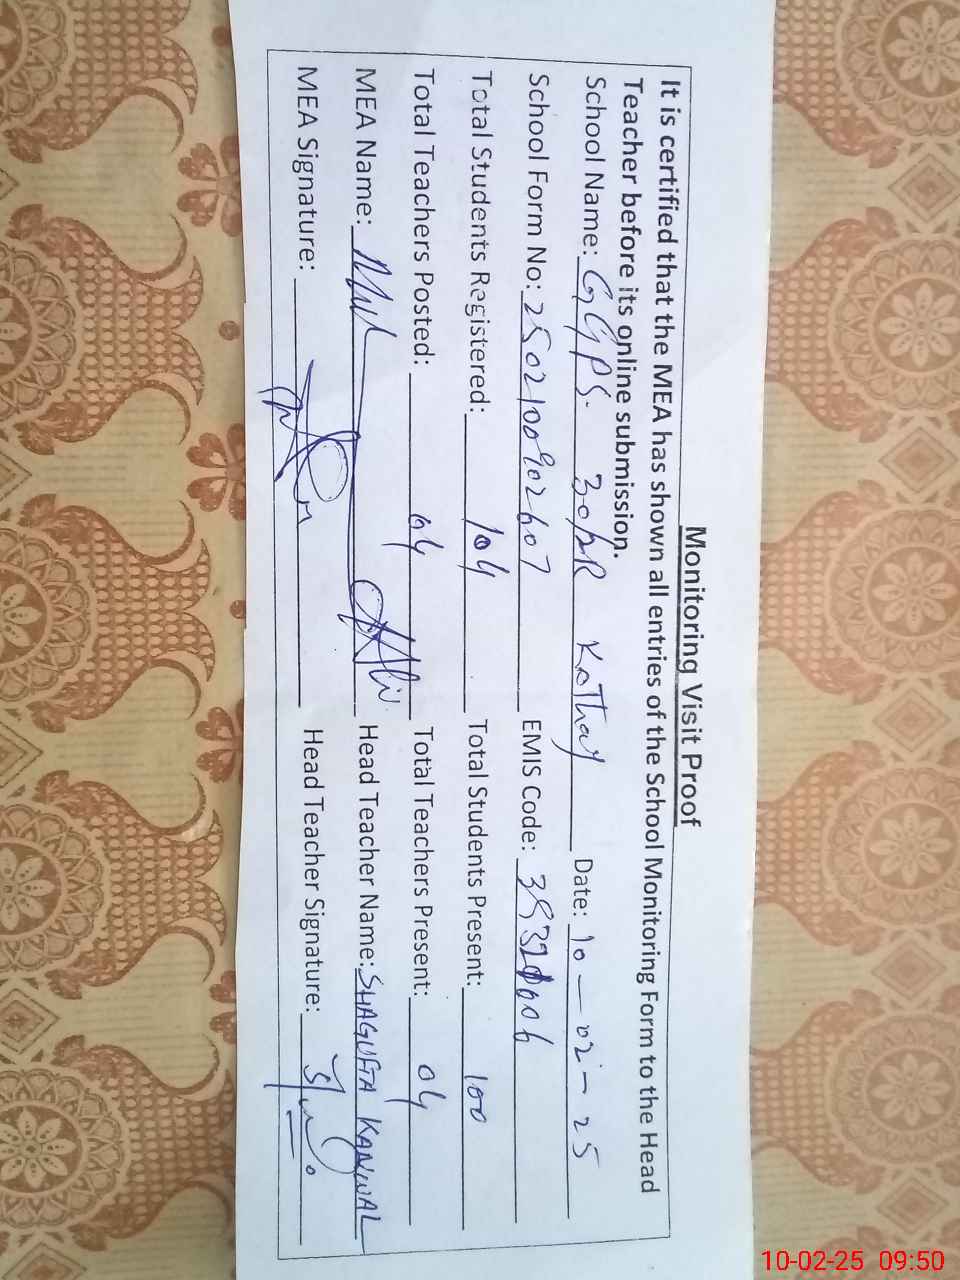 Monitoring Visit Proof
It is certified that the MEA has shown all entries of the School Monitoring Form to the Head
Teacher before its online submission.
School Name: GGPS. 30/2R Kathay Date: 10-02-25
School Form No: 2502100902607 EMIS Code:
Total Students Registered: 104 Total Students Present: 100
Total Teachers Posted: 04 Total Teachers Present: 04
MEA Name: Head Teacher Name: SHAGUFTA KANWAL
MEA Signature: Head Teacher Signature:
10-02-25 09:50